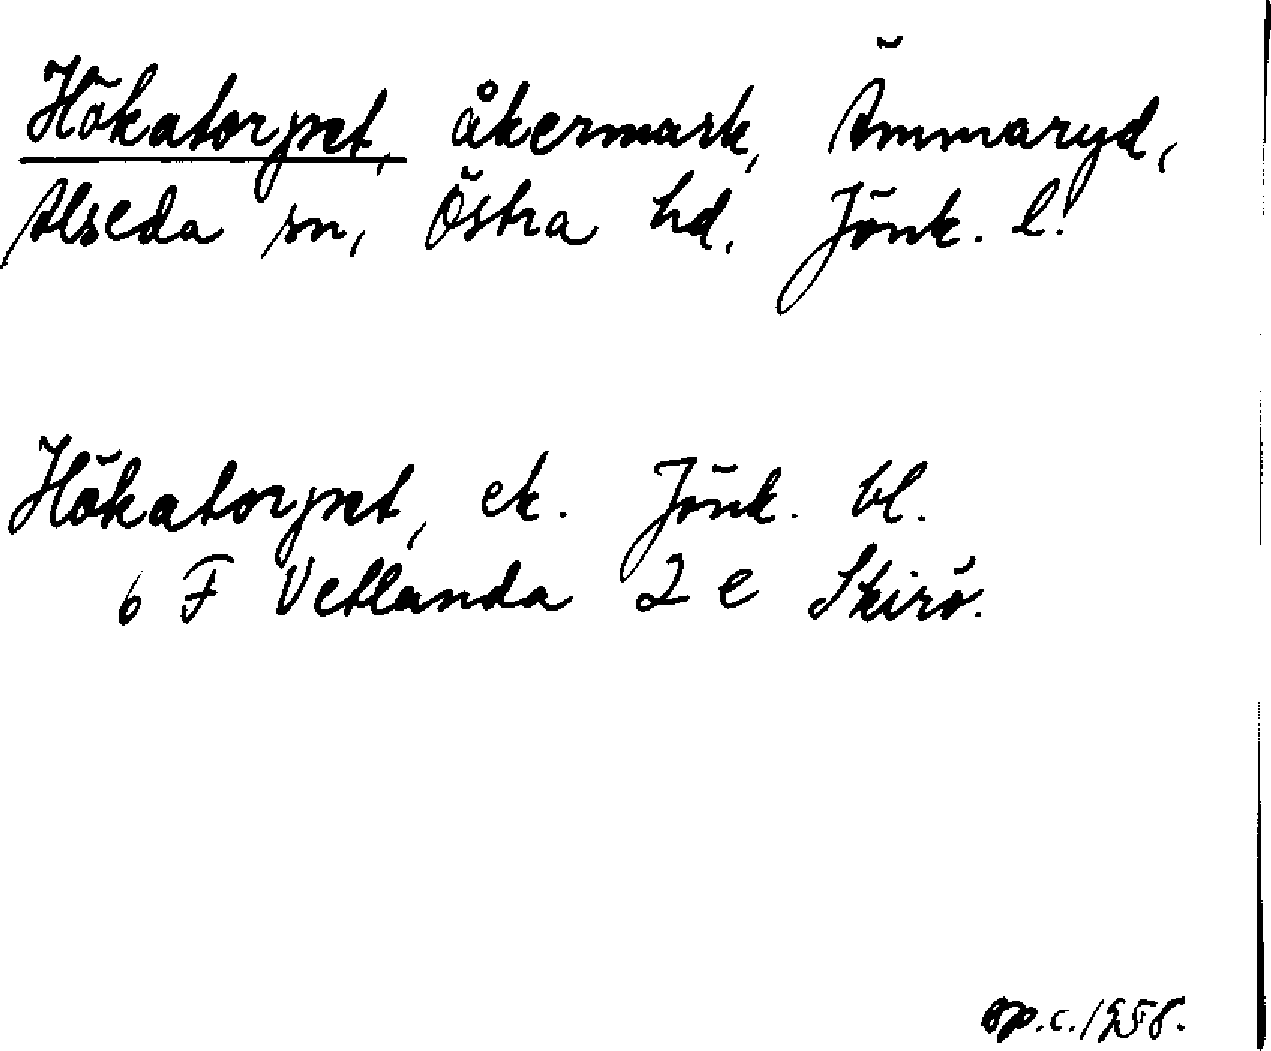 Hökatorpet, åkermark, Ämmaryd,
Alseda sn, Östra hd. Jönk. l.
Hökatorpet, ek. Jönk. bl.
6 F Vetlanda 2 e Skirö.
op.c. 1958.